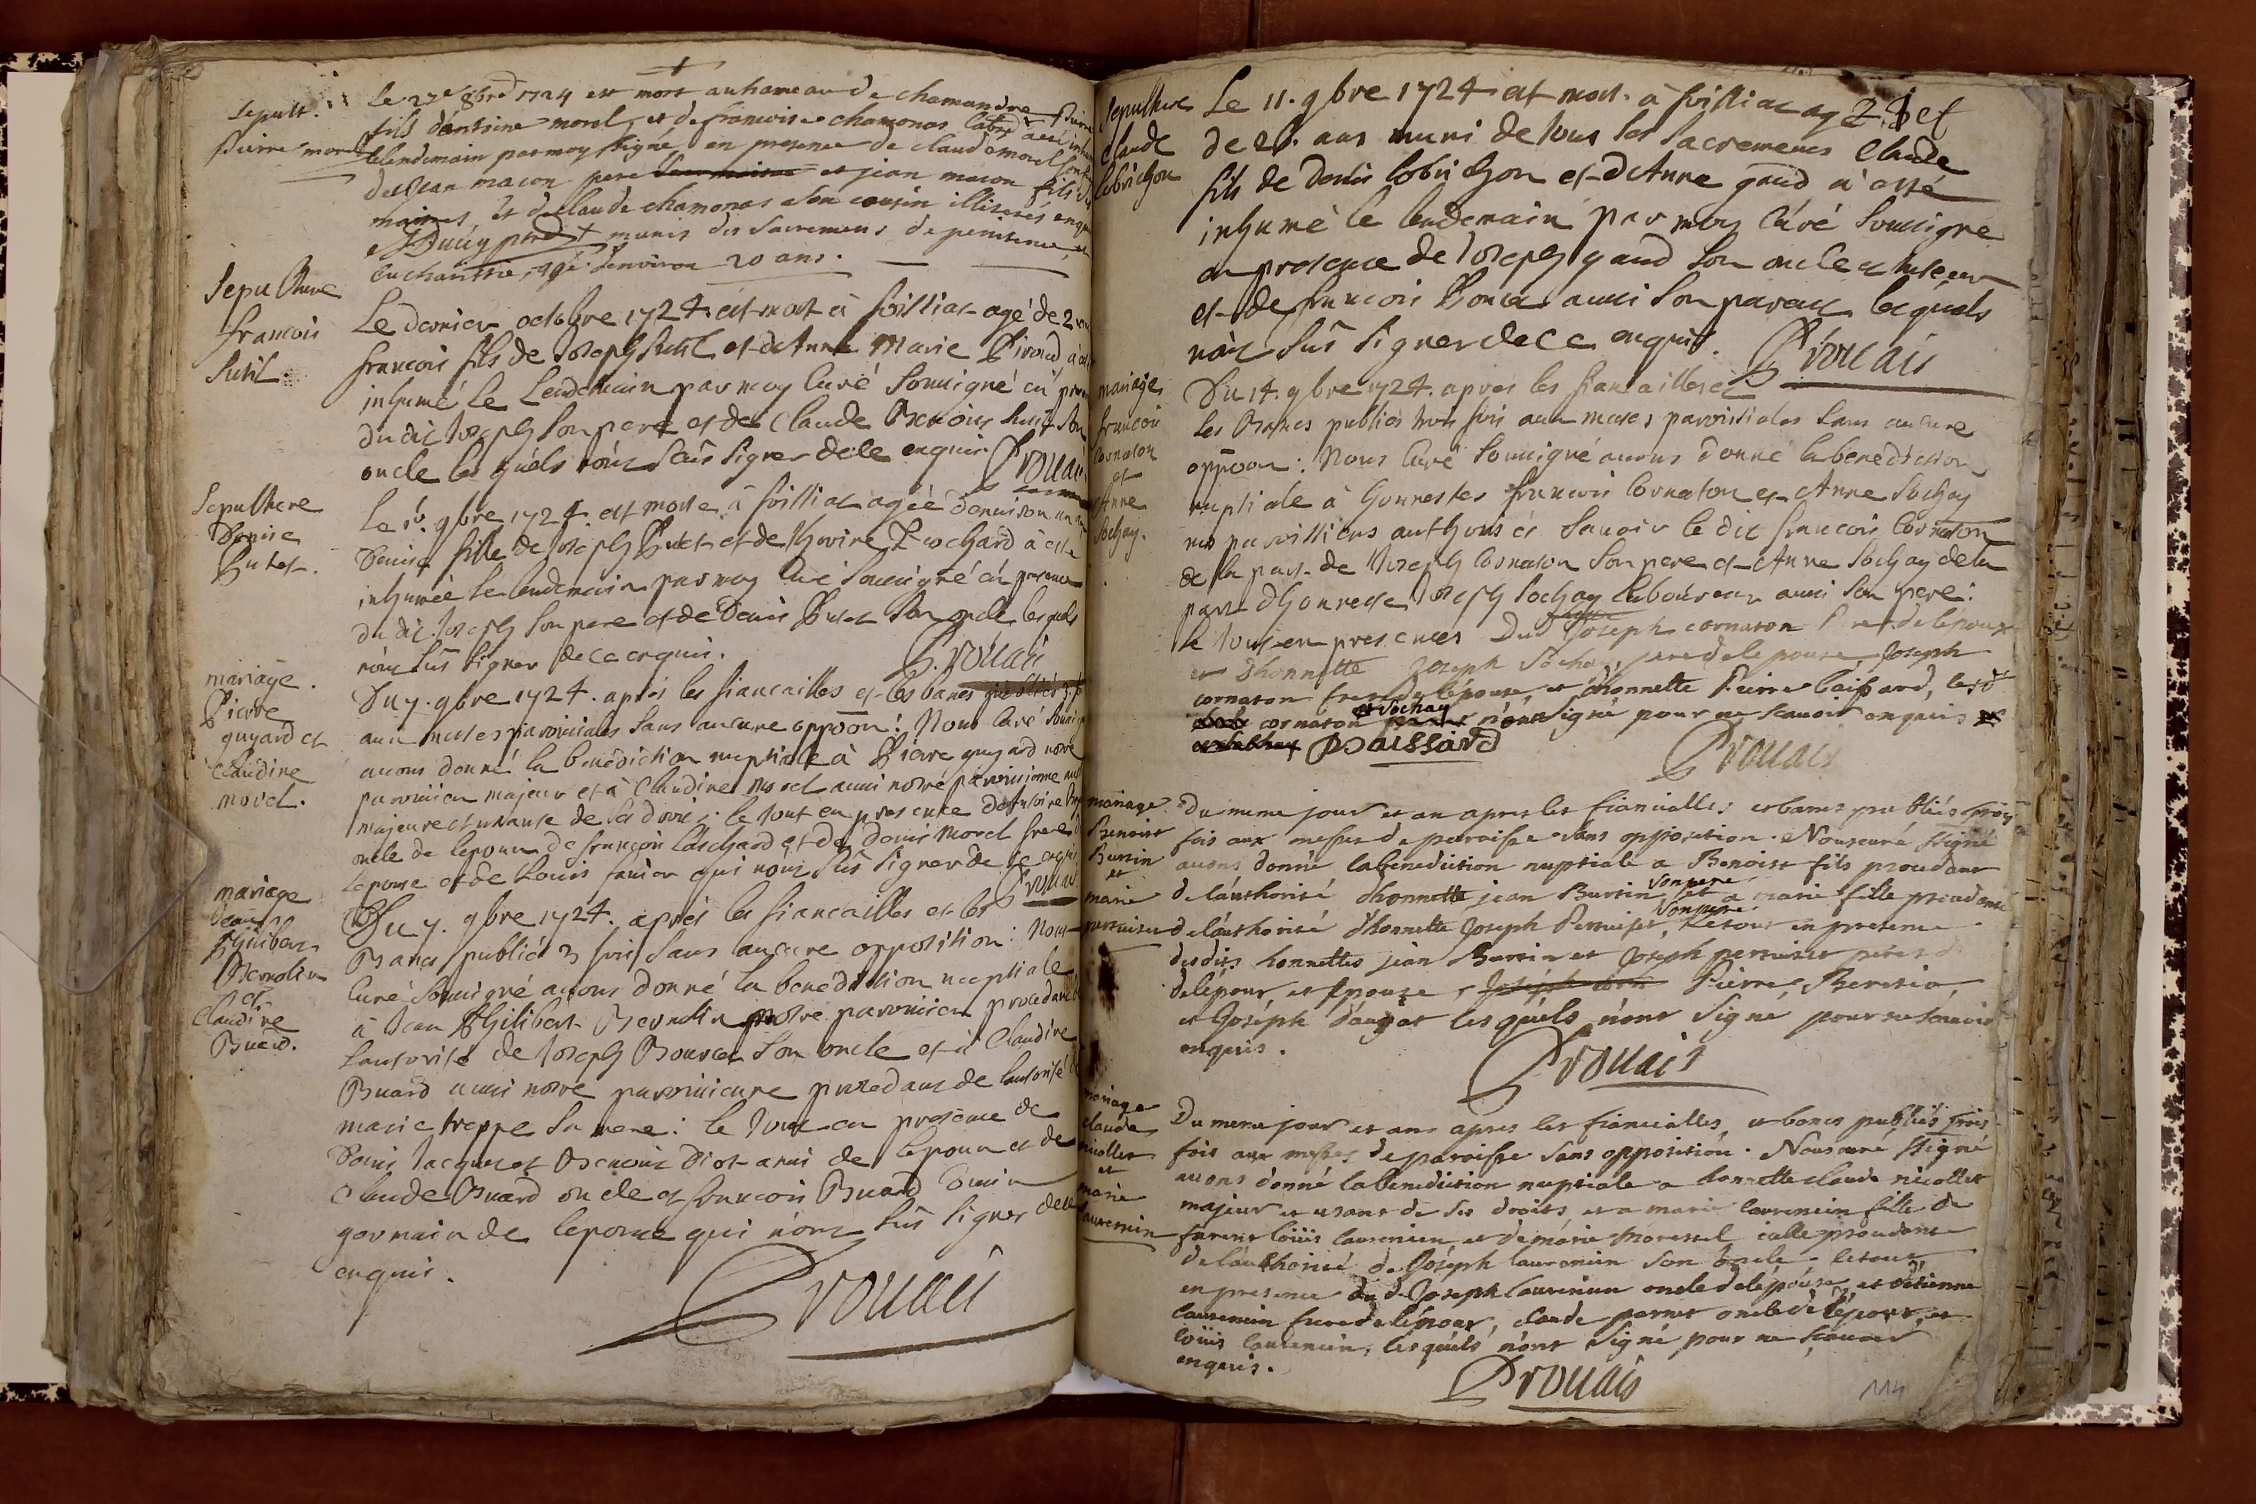 Sepult.
Pierre morel
le 27e 8bre 1724 est mort au hameau de chamandre Pierre
fils d'antoine morel et de francoise chamonas
lelendemain par moy ssigné en presence de claude morel
de Jean macon pere et jean macon fils
et de claude chamonas son cousin illiterés enquis
munis des sacremens de penitence et
Euchairistie, agé d'environ 20 ans.
Sepulture
francois
Sutil.
Le dernier octobre 1724. est mort à foissiat agé de 2
francois fils de Joseph Sutil et d'Anne Marie Piroud à esté
inhumé le Lendemain par moy Curé Soussigné en
du dit Joseph son pere et de Claude Benoist Sutil Son
oncle lesquels n'ont Sçûs signer de ce enquis
Prouais
Sepulture
Denise
Putet.
le 1r. 9bre 1724. est morte à foissiat agéé d'environ un
Denise fille de Joseph Putet et de Thovine Brochard à esté
inhumée le lendemain par moy Curé soussigné en presence
du dit Joseph son pere et de Denis Putet Son oncle lesquels
n'ont Sûs signer de ce enquis.
Prouais
mariage.
Pierre
guyard et
Claudine
morel.
Du 7. 9bre 1724. aprés les fiancailles et les bancs publiés 3 f
aux messes paroissiales sans aucune oppôon: Nous Curé
avons donné la benediction nuptiale à Pierre guyard notre
paroissien majeur et à Claudine Morel aussi notre paroissienne
majeure et usante de ses droits: le tout en presence d'Antoine
oncle de lepoux de francois Cuschard et de denis Morel frere
lepouse et de Louis favier qui n'ont Sûs signer de ce enquis
Prouais
mariage
Jean
Philibert
Bernolin
et
Claudine
Buard.
Du 7. 9bre 1724. aprés les fiancailles et les
Bancs publiés 3 fois sans aucune opposition: Nous
Curé Soussigné avons donné la benediction nuptiale
à Jean Philibert Bernolin notre paroissien procedant de
lautorité de Joseph Bouvard Son oncle et à Claudine
Buard aussi notre paroissienne procedant de lautorité de
marie trappe sa mere: le tout en presence de
Denis Jacquet et Benoist Diot amis de lepoux et de
Claude Buard oncle et francois Buard Cousin
germain de lepouse qui n'ont Sûs signer de ce
enquis.
Prouais
Sepulture
Claude
Cobrichon
Le 11. 9bre 1724 est mort à foissiat agé
de 26. ans muni de tous les Sacremens Claude
fils de Denis Cobrichon et d'Anne gaud à esté
inhumé le lendemain par moy Curé Soussigné
en presence de Joseph gaud Son oncle et tuteur
et de francois Poncet aussi Son parent lesquels
n'ont Sûs signer de ce enquis.
Prouais
mariage
francois
Cornaton
et
Anne
Sochay.
Du 14. 9bre 1724. aprés les fiancailles et
les Bancs publiés trois fois aux messes paroissiales Sans aucune
oppôon: Nous Curé Soussigné avons donné la benediction
nuptiale à honnestes francois Cornaton et Anne Sochay
nos paroissiens authorisés savoir le dit francois Cornaton
de la part de Joseph Cornaton son pere et Anne Sochay de la
part d'honneste Joseph Sochay laboureur aussi son pere:
le tout en presences Dud Joseph cornaton Pere de lépoux
et d'honnette Joseph Sochay pere de lepouse, Joseph
cornaton frere de lépoux et d'honnette Pierre baissard, lesd
cornaton et Sochay n'ont signé pour ne scauoir enquis
Baissard
Prouais
mariage
Benoist
Bursin
et
marie
perruiset
Du meme jour et an apres les fiancialles et bancs publiés trois
fois aux messes de paroisse sans opposition. Nous curé ssigné
avons donné la benediction nuptiale a Benoist fils procedant
de láuthorité d'honnette jean Bursin son pere et a marie fille procedante
de láuthorité d'honnette Joseph Perruiset, son pere le tout en presence
desdits honnettes jean Bursin et Joseph perruiset peres
delépoux et Epouse, Pierre Bursin,
et Joséph dauget lesquéls n'ónt signé pour ne scauoir
enquis.
Prouais
mariage
claude
nicollet
et
marie
laurencin
Du meme jour et ans apres les fiancialles, et bancs publiés trois
fois aux messes de paroisse sans opposition. Nous curé ssigné
avons donné la benediction nuptiale a honnette claude nicollet
majeur et usant de ses droits et a marie laurencin fille de
furent loüis laurencin et de márie moressel icelle procedante
de láuthorité de Joséph laurencin son oncle le tout
en presence du d Joseph laurencin oncle delépouse, et etienne
laurencin frere de lépouse, claude pernet oncle de lépoux, et
loüis laurencin, lesquéls n'ónt signé pour ne scauoir
enquis.
Prouais
114